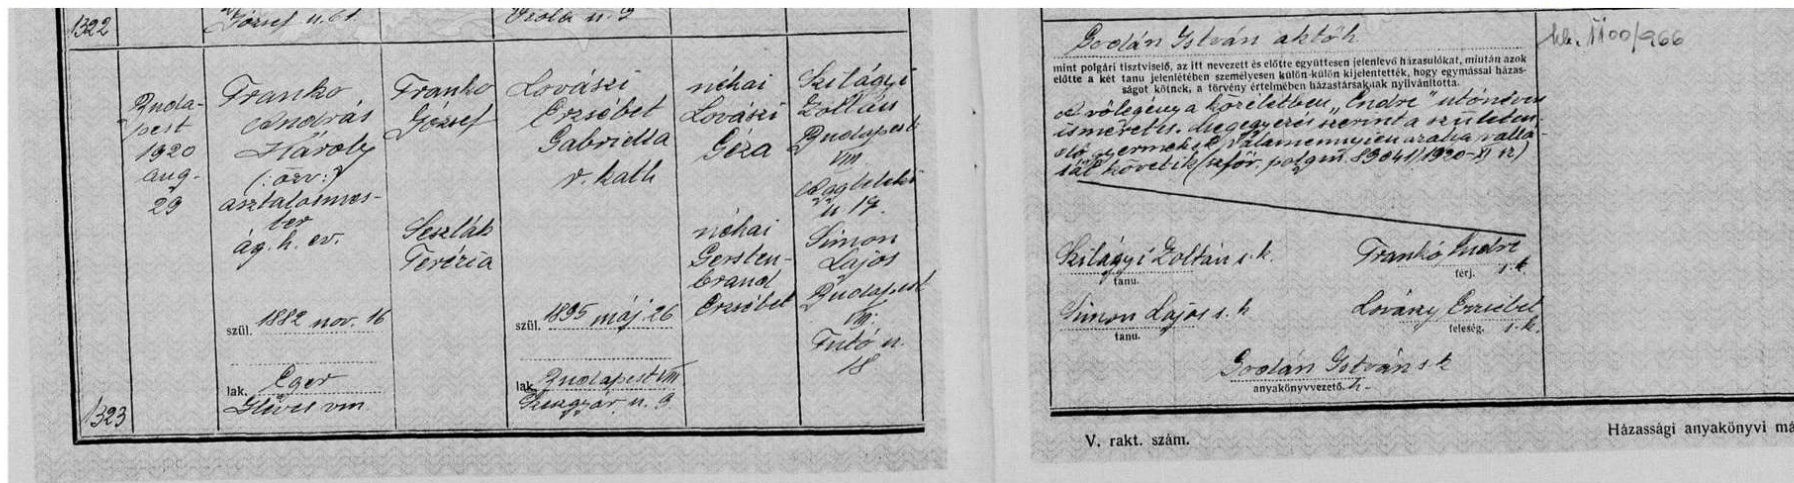 1322
József u. 61
u. 9
1323
Buda-
pest
1920
aug.
29
Franko
András
Károly
(: özv :)
asztalosmes-
ter
ág. h. ev.
szül. 1882 nov. 16
lak. Eger
Heves vm
Franko
József
Seszták
Terézia
Lovászi
Erzsébet
Gabriella
r. kath
szül. 1895 máj. 26
lak. Budapest VIII
u. 9
néhai
Lovászi
Géza
néhai
Gersten-
brand
Erzsébet
Szilágyi
Zoltán
Budapest
VIII
Aggteleki
u 17.
Simon
Lajos
Budapest
VIII.
Futó u.
18
Godán István aktöh
mint polgári tisztviselő, az itt nevezett és előtte együttesen jelenlevő házasulókat, miután azok
előtte a két tanu jelenlétében személyesen külön-külön kijelentették, hogy egymással házas-
ságot kötnek, a törvény értelmében házastársaknak nyilvánította.
A vőlegény a közéletben „Endre" utónéven
ismeretes. Megegyezés szerint a születen-
dő gyermekek valamennyien az atya vallá-
sát követik (szfőv. polgm. 89041/1920-XI sz)
Szilágyi Zoltán s. k.
tanu.
Frankó Endre
férj. s. k.
Simon Lajos s. k
tanu.
Lovászy Erzsébet
feleség. s. k.
Godán István s. k
anyakönyvvezető-h.
1100/966
V. rakt. szám.
Házassági anyakönyvi má